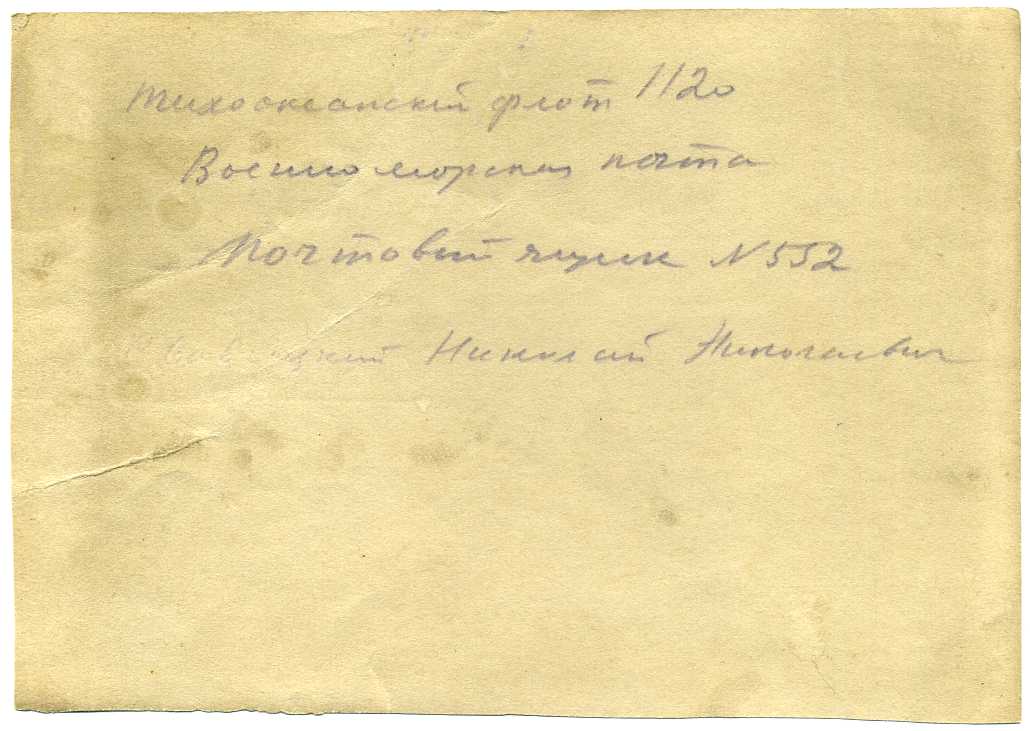 Тихоокеанский флот 1120
Военно морская почта
Почтовый ящик N 552
Николай Николаевич